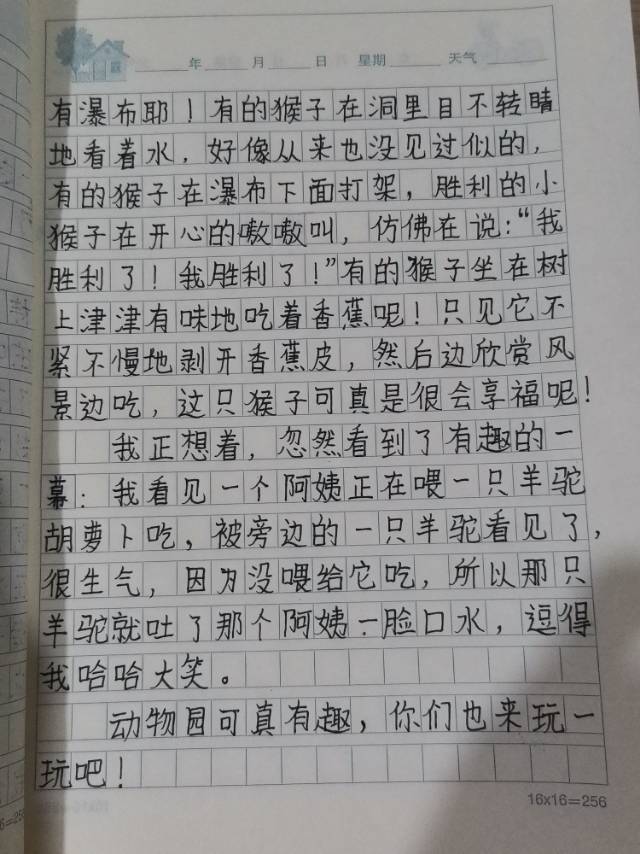 年 月 日 星期 天气
有瀑布耶！有的猴子在洞里目不转睛
地看着水，好像从来也没见过似的，
有的猴子在瀑布下面打架，胜利的小
猴子在开心的嗷嗷叫，仿佛在说：“我
胜利了！我胜利了！”有的猴子坐在树
上津津有味地吃着香蕉呢！只见它不
紧不慢地剥开香蕉皮，然后边欣赏风
景边吃，这只猴子可真是很会享福呢！
我正想着，忽然看到了有趣的一
幕：我看见一个阿姨正在喂一只羊驼
胡萝卜吃，被旁边的一只羊驼看见了，
很生气，因为没喂给它吃，所以那只
羊驼就吐了那个阿姨一脸口水，逗得
我哈哈大笑。
动物园可真有趣，你们也来玩一
玩吧！
16x16=256